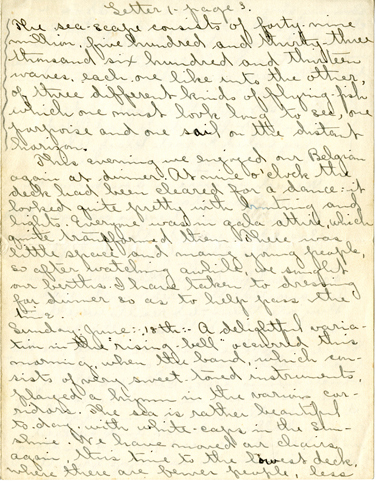 Letter 1- page 3.
The sea-scape consists of forty-nine
million, five hundred and thirty three
thousand six hundred and thirteen
waves, each one like unto the other,
of three different kinds of flying-fish
which one must look long to see, one
porpoise and one sail on the distant
horizon.
This evening we enjoyed our Belgian
again at dinner. At nine o'clock the
deck had been cleared for a dance: it
looked quite pretty with bunting and
lights. Everyone was in gala attire, which
quite transformed them. There was
little space and many young people,
so after watching awhile, we sought
our births. I have taken to dressing
for dinner so as to help pass the
time.
Sunday, June: 10th:- A delightful varia-
tion in the "rising bell" occurred this
morning, when the band, which con-
sists of very sweet toned instruments,
played a hymn in the various cor-
ridors. The sea is rather beautiful
to-day with white-caps in the sun-
shine. We have moved our chairs
again this time to the lowest deck,
where there are fewer people, less